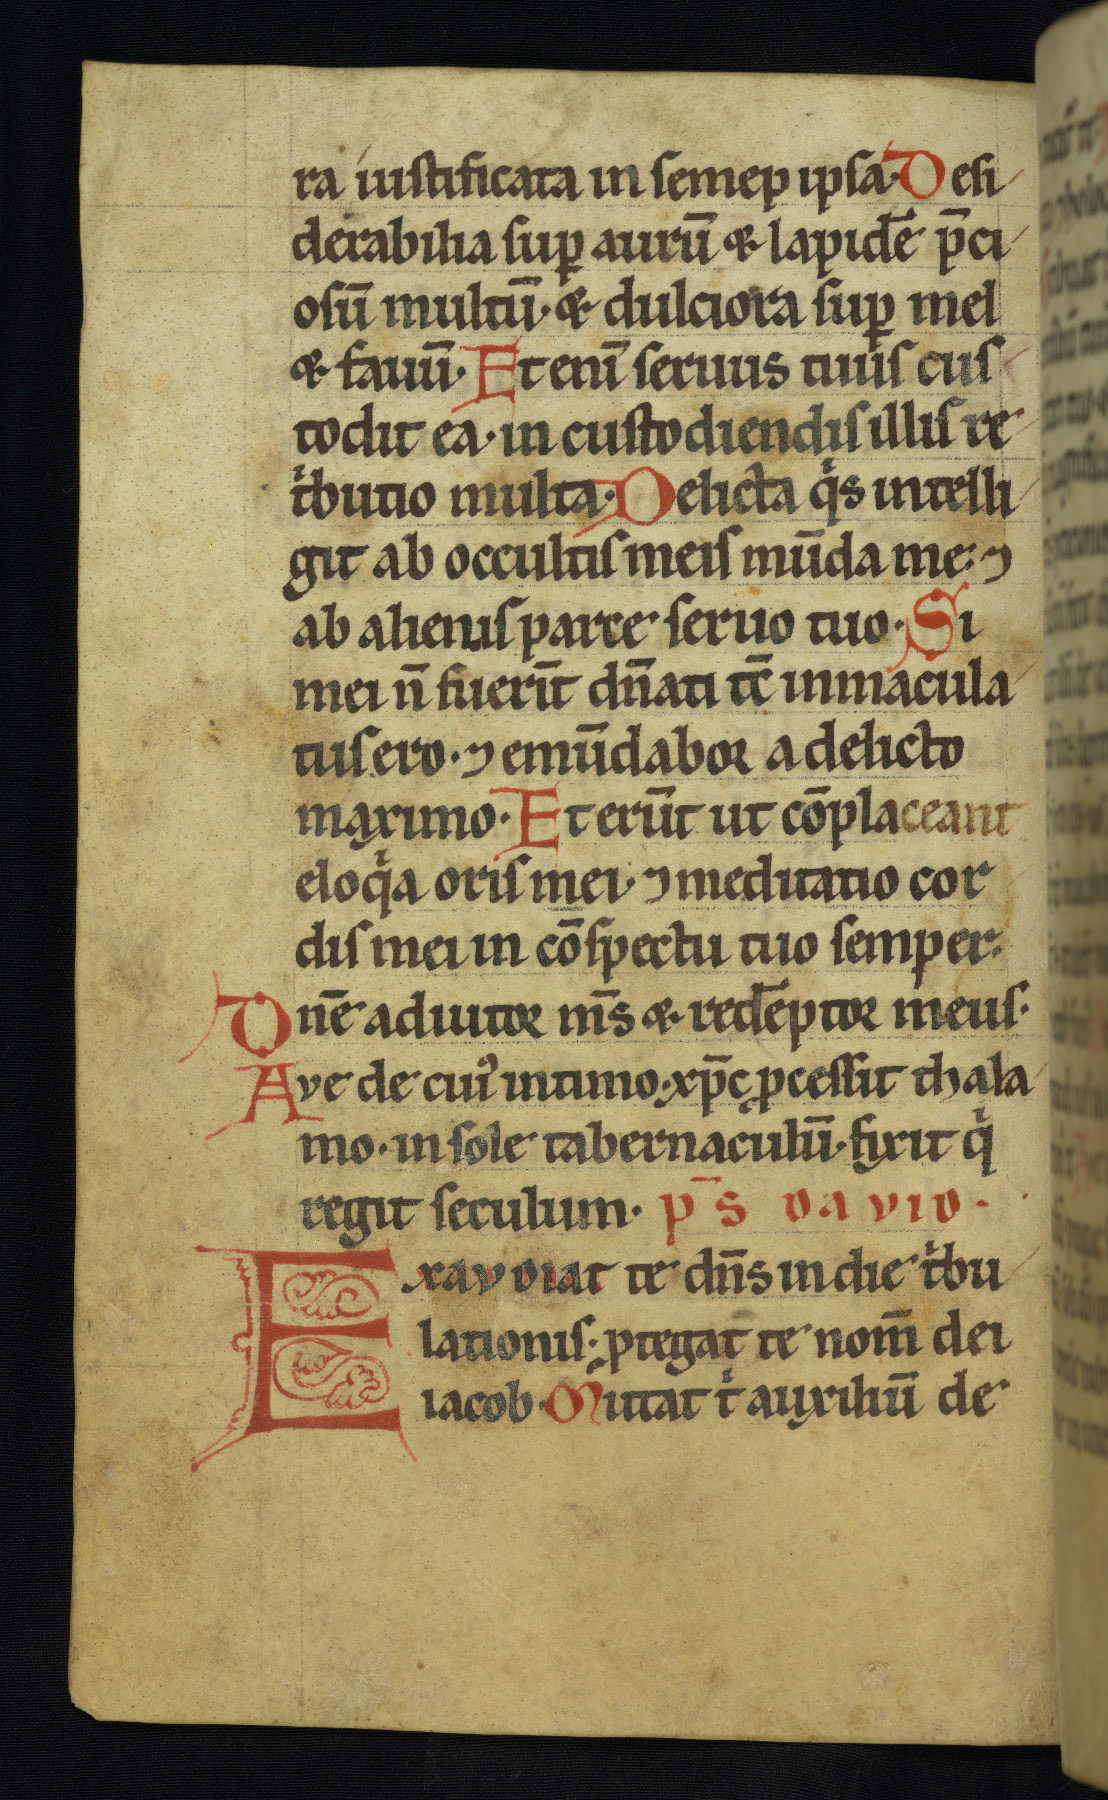 ra iustificata in semep ipsa· Desi
derabilia suꝑ aurū & lapidē p̄ci
osū multū· & dulciora suꝑ mel
& fauū· Et enī seruus tuus cus
todit ea· in custodiendis illis re
tͥbutio multa· Delicta qͥs intelli
git ab occultis meis mūda me· ⁊
ab alienis parce seruo tuo· Si
mei n̄ fuerīt dn̄ati tc̄ inmacula
tus ero· ⁊ emūdabor a delicto
maximo· Et erūt ut cōplaceant
eloqͥa oris mei· ⁊ meditatio cor
dis mei in cōspectu tuo semper·
Dnē adiutor m̄s & redēptor meus·
Ave de cuiꝰ intimo· xp̄c ꝓcessit thala
mo· in sole tabernaculū· fixit qͥ
regit seculum· p̄s david·
Exavdiat te dn̄s in die tͥbu
lationis· ꝓtegat te nom̄ dei
iacob· Mittat tͥ auxiliū de